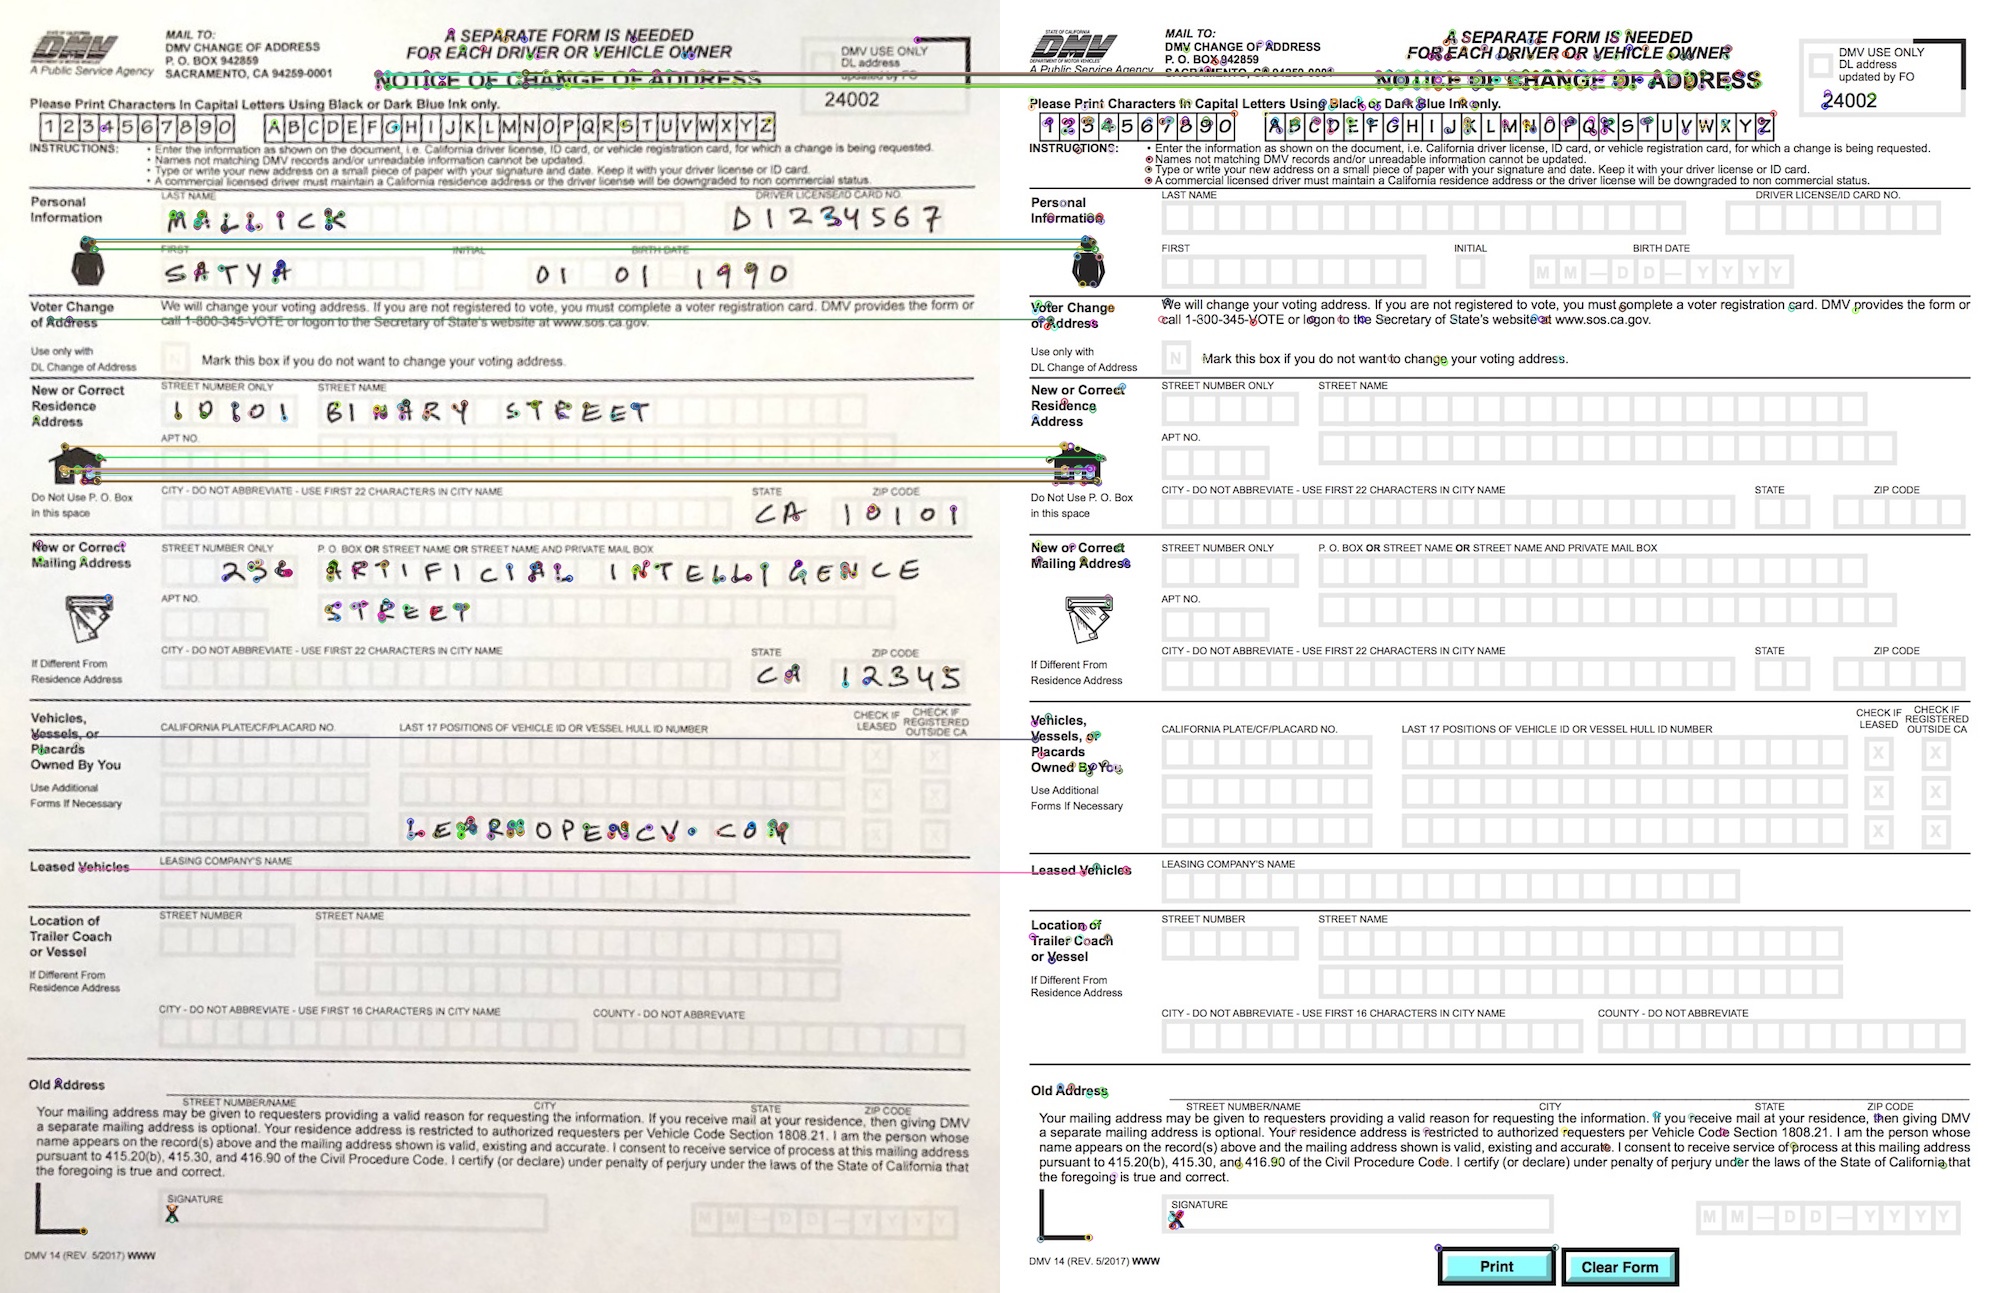 STATE OF CALIFORNIA
DMV
A Public Service Agency
MAIL TO:
DMV CHANGE OF ADDRESS
P. O. BOX 942859
SACRAMENTO, CA 94259-0001
A SEPARATE FORM IS NEEDED
FOR EACH DRIVER OR VEHICLE OWNER
NOTICE OF CHANGE OF ADDRESS
DMV USE ONLY
DL address
updated by FO
24002
Please Print Characters In Capital Letters Using Black or Dark Blue Ink only.
1 2 3 4 5 6 7 8 9 0 A B C D E F G H I J K L M N O P Q R S T U V W X Y Z
INSTRUCTIONS: • Enter the information as shown on the document, i.e. California driver license, ID card, or vehicle registration card, for which a change is being requested.
• Names not matching DMV records and/or unreadable information cannot be updated.
• Type or write your new address on a small piece of paper with your signature and date. Keep it with your driver license or ID card.
• A commercial licensed driver must maintain a California residence address or the driver license will be downgraded to non commercial status.
Personal
Information
LAST NAME
DRIVER LICENSE/ID CARD NO.
MALLICK D1234567
FIRST INITIAL BIRTH DATE
SATYA 01 01 1990
Voter Change
of Address
We will change your voting address. If you are not registered to vote, you must complete a voter registration card. DMV provides the form or
call 1-800-345-VOTE or logon to the Secretary of State's website at www.sos.ca.gov.
Use only with
DL Change of Address
N Mark this box if you do not want to change your voting address.
New or Correct
Residence
Address
STREET NUMBER ONLY STREET NAME
10101 BINARY STREET
APT NO.
Do Not Use P. O. Box
in this space
CITY - DO NOT ABBREVIATE - USE FIRST 22 CHARACTERS IN CITY NAME STATE ZIP CODE
CA 10101
New or Correct
Mailing Address
STREET NUMBER ONLY P. O. BOX OR STREET NAME OR STREET NAME AND PRIVATE MAIL BOX
256 ARTIFICIAL INTELLIGENCE
APT NO.
STREET
If Different From
Residence Address
CITY - DO NOT ABBREVIATE - USE FIRST 22 CHARACTERS IN CITY NAME STATE ZIP CODE
CA 12345
Vehicles,
Vessels, or
Placards
Owned By You
Use Additional
Forms If Necessary
CALIFORNIA PLATE/CF/PLACARD NO. LAST 17 POSITIONS OF VEHICLE ID OR VESSEL HULL ID NUMBER
CHECK IF
LEASED
CHECK IF
REGISTERED
OUTSIDE CA
X X
X X
X X
LEARNOPENCV.COM
Leased Vehicles
LEASING COMPANY'S NAME
Location of
Trailer Coach
or Vessel
If Different From
Residence Address
STREET NUMBER STREET NAME
CITY - DO NOT ABBREVIATE - USE FIRST 16 CHARACTERS IN CITY NAME COUNTY - DO NOT ABBREVIATE
Old Address
STREET NUMBER/NAME CITY STATE ZIP CODE
Your mailing address may be given to requesters providing a valid reason for requesting the information. If you receive mail at your residence, then giving DMV
a separate mailing address is optional. Your residence address is restricted to authorized requesters per Vehicle Code Section 1808.21. I am the person whose
name appears on the record(s) above and the mailing address shown is valid, existing and accurate. I consent to receive service of process at this mailing address
pursuant to 415.20(b), 415.30, and 416.90 of the Civil Procedure Code. I certify (or declare) under penalty of perjury under the laws of the State of California that
the foregoing is true and correct.
SIGNATURE
X
MM—DD—YYYY
DMV 14 (REV. 5/2017) WWW
STATE OF CALIFORNIA
DMV
DEPARTMENT OF MOTOR VEHICLES
A Public Service Agency
MAIL TO:
DMV CHANGE OF ADDRESS
P. O. BOX 942859
SACRAMENTO, CA 94259-0001
A SEPARATE FORM IS NEEDED
FOR EACH DRIVER OR VEHICLE OWNER
NOTICE OF CHANGE OF ADDRESS
DMV USE ONLY
DL address
updated by FO
24002
Please Print Characters In Capital Letters Using Black or Dark Blue Ink only.
1 2 3 4 5 6 7 8 9 0 A B C D E F G H I J K L M N O P Q R S T U V W X Y Z
INSTRUCTIONS: • Enter the information as shown on the document, i.e. California driver license, ID card, or vehicle registration card, for which a change is being requested.
• Names not matching DMV records and/or unreadable information cannot be updated.
• Type or write your new address on a small piece of paper with your signature and date. Keep it with your driver license or ID card.
• A commercial licensed driver must maintain a California residence address or the driver license will be downgraded to non commercial status.
Personal
Information
LAST NAME DRIVER LICENSE/ID CARD NO.
FIRST INITIAL BIRTH DATE
MM—DD—YYYY
Voter Change
of Address
We will change your voting address. If you are not registered to vote, you must complete a voter registration card. DMV provides the form or
call 1-800-345-VOTE or logon to the Secretary of State's website at www.sos.ca.gov.
Use only with
DL Change of Address
N Mark this box if you do not want to change your voting address.
New or Correct
Residence
Address
STREET NUMBER ONLY STREET NAME
APT NO.
Do Not Use P. O. Box
in this space
CITY - DO NOT ABBREVIATE - USE FIRST 22 CHARACTERS IN CITY NAME STATE ZIP CODE
New or Correct
Mailing Address
STREET NUMBER ONLY P. O. BOX OR STREET NAME OR STREET NAME AND PRIVATE MAIL BOX
APT NO.
If Different From
Residence Address
CITY - DO NOT ABBREVIATE - USE FIRST 22 CHARACTERS IN CITY NAME STATE ZIP CODE
Vehicles,
Vessels, or
Placards
Owned By You
Use Additional
Forms If Necessary
CALIFORNIA PLATE/CF/PLACARD NO. LAST 17 POSITIONS OF VEHICLE ID OR VESSEL HULL ID NUMBER
CHECK IF
LEASED
CHECK IF
REGISTERED
OUTSIDE CA
X X
X X
X X
Leased Vehicles
LEASING COMPANY'S NAME
Location of
Trailer Coach
or Vessel
If Different From
Residence Address
STREET NUMBER STREET NAME
CITY - DO NOT ABBREVIATE - USE FIRST 16 CHARACTERS IN CITY NAME COUNTY - DO NOT ABBREVIATE
Old Address
STREET NUMBER/NAME CITY STATE ZIP CODE
Your mailing address may be given to requesters providing a valid reason for requesting the information. If you receive mail at your residence, then giving DMV
a separate mailing address is optional. Your residence address is restricted to authorized requesters per Vehicle Code Section 1808.21. I am the person whose
name appears on the record(s) above and the mailing address shown is valid, existing and accurate. I consent to receive service of process at this mailing address
pursuant to 415.20(b), 415.30, and 416.90 of the Civil Procedure Code. I certify (or declare) under penalty of perjury under the laws of the State of California that
the foregoing is true and correct.
SIGNATURE
X
MM—DD—YYYY
DMV 14 (REV. 5/2017) WWW
Print Clear Form